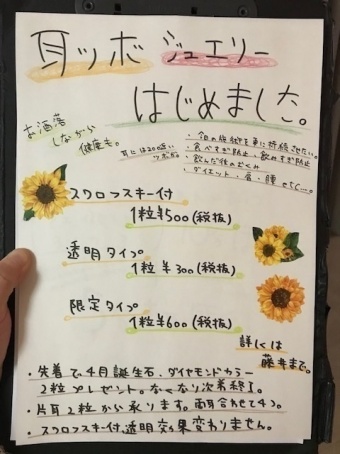 耳ツボジュエリー
はじめました。
お洒落
しながら
健康も。
耳には200近い
ツボが
・食べすぎ防止・飲みすぎ防止
・飲んだ後のむくみ
・ダイエット・肩・腰 etc...。
スワロフスキー付
1粒¥500(税抜)
透明タイプ
1粒¥300(税抜)
限定タイプ
1粒¥600(税抜)
詳しくは
藤井まで。
・先着で4月誕生石、ダイヤモンドカラー
2粒プレゼント。なくなり次第終了。
・片耳2粒から承ります。両耳合わせて4つ。
・スワロフスキー付、透明効果変わりません。